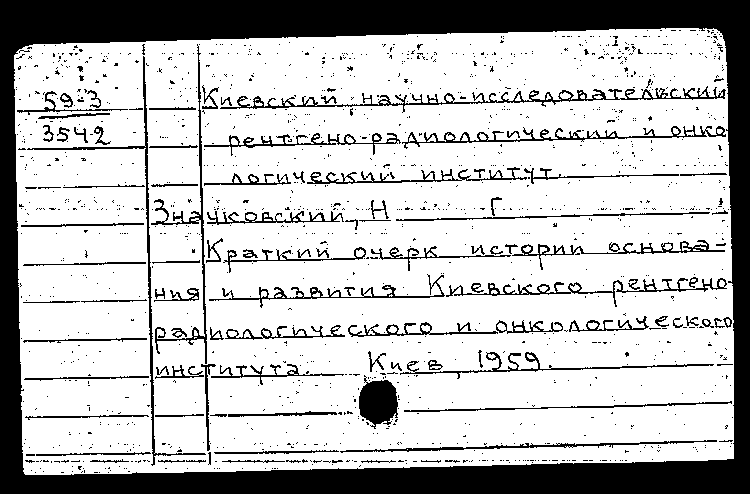 59-3
3542
Киевский научно-исследовательский
рентгено-радиологический и онко
логический институт.
Значковский, Н Г
Краткий очерк истории основа-
ния и развития Киевского рентгено-
радиологического и онкологического
института. Киев, 1959.